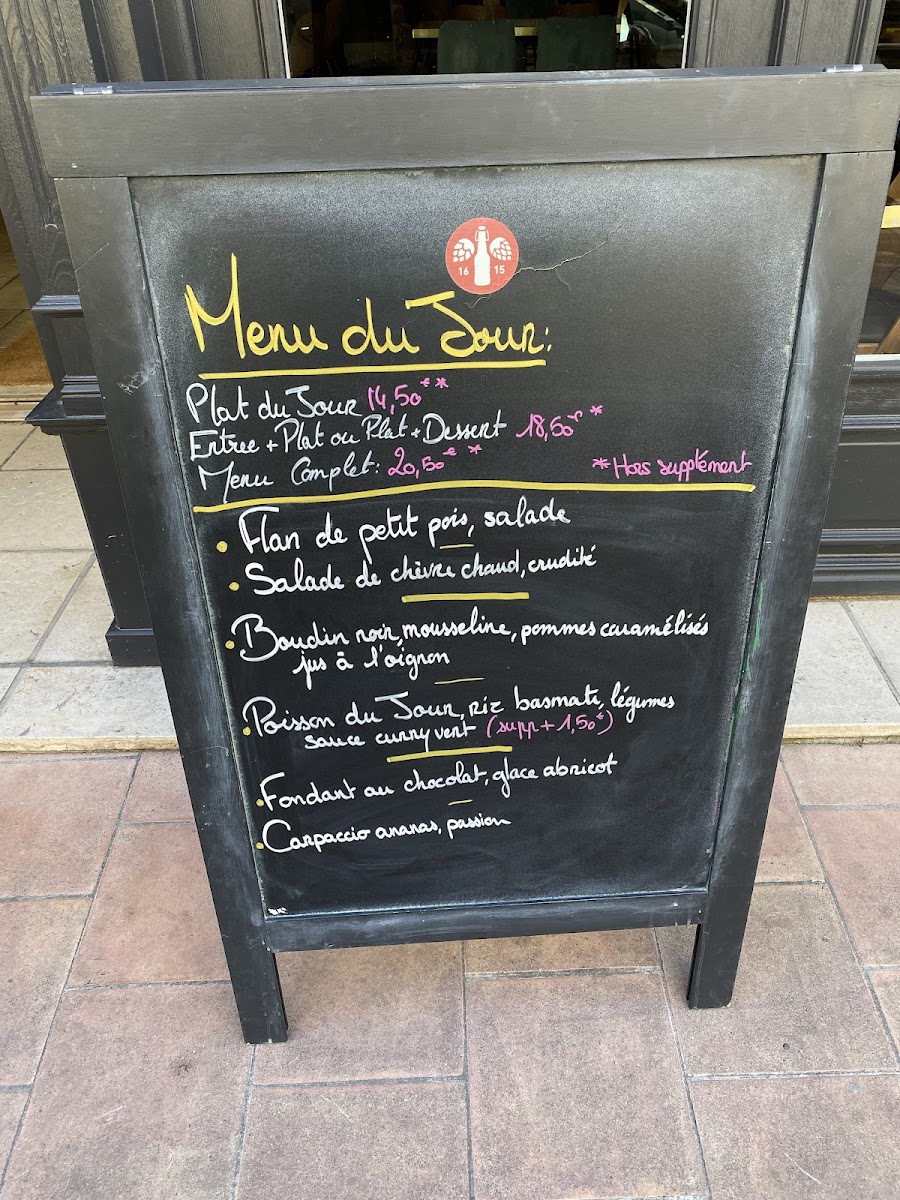 16 15
Menu du Jour:
Plat du Jour 14,50€*
Entree + Plat ou Plat + Dessert 18,50€*
Menu Complet: 20,50€*
*Hors supplément
• Flan de petit pois, salade
• Salade de chèvre chaud, crudité
• Boudin noir, mousseline, pommes caramélisés
jus à l'oignon
• Poisson du Jour, riz basmati, légumes
sauce curry vert (supp + 1,50€)
• Fondant au chocolat, glace abricot
• Carpaccio ananas, passion